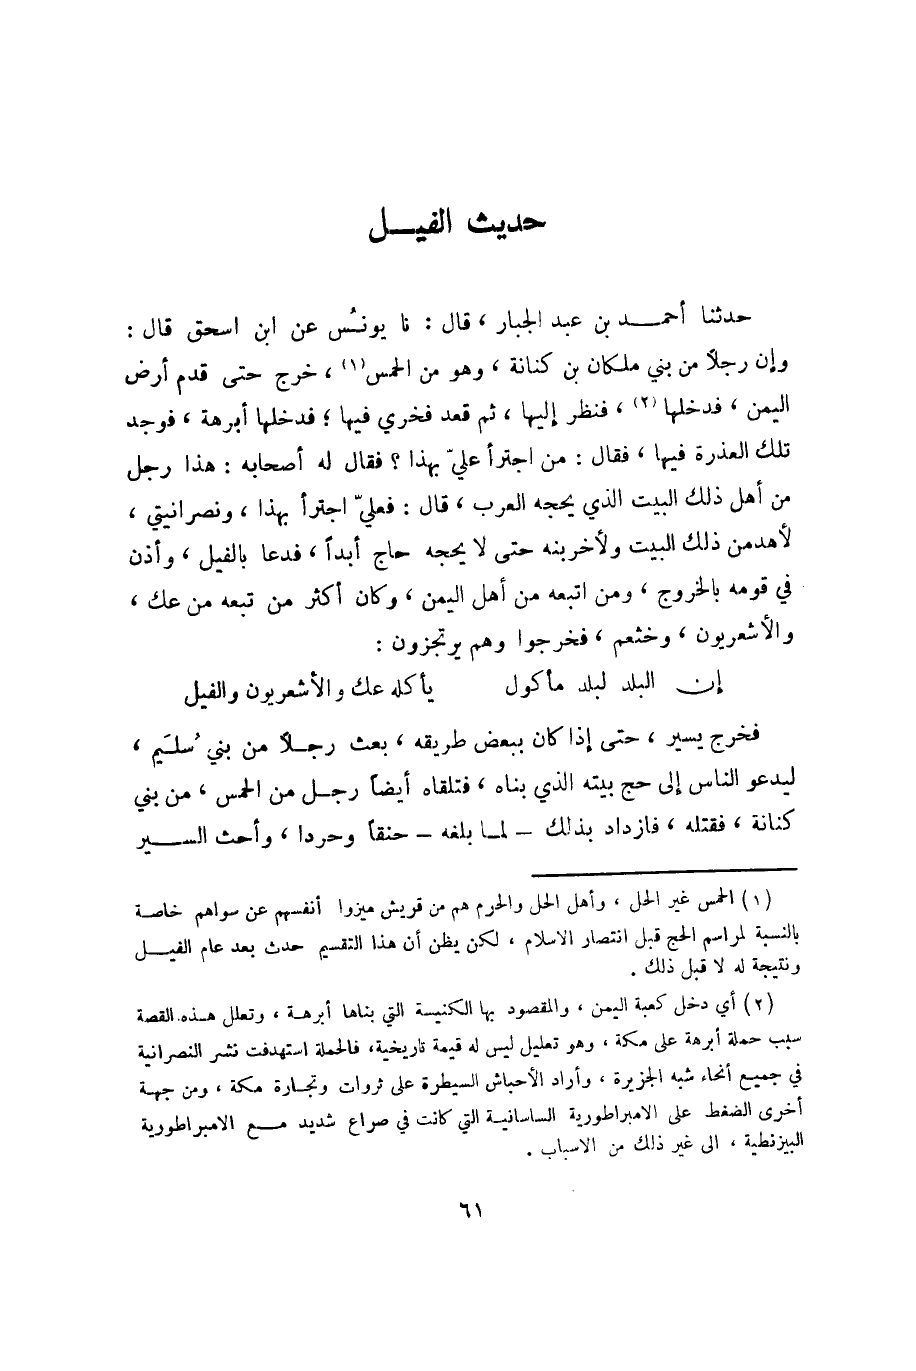 حديث الفيــل
حدثنا أحمــد بن عبد الجبار ، قال : نا يونُس عن ابن اسحق قال :
وإن رجلاً من بني ملكان بن كنانة ، وهو من الحمس(١) ، خرج حتى قدم أرض
اليمن ، فدخلها(٢) ، فنظر إليها ، ثم قعد فخري فيها ؛ فدخلها أبرهة ، فوجد
تلك العذرة فيها ، فقال : من اجترأ عليّ بهذا ؟ فقال له أصحابه : هذا رجل
من أهل ذلك البيت الذي يحجه العرب ، قال : فعليّ اجترأ بهذا ، ونصرانيتي ،
لأهدمن ذلك البيت ولأخربنه حتى لا يحجه حاج أبداً ، فدعا بالفيل ، وأذن
في قومه بالخروج ، ومن اتبعه من أهل اليمن ، وكان أكثر من تبعه من عك ،
والأشعريون ، وخثعم ، فخرجوا وهم يرتجزون :
إن البلد لبلد مأكول يأكله عك والأشعريون والفيل
فخرج يسير ، حتى إذا كان ببعض طريقه ، بعث رجلاً من بني سُليَم ،
ليدعو الناس إلى حج بيته الذي بناه ، فتلقاه أيضاً رجــل من الحمس ، من بني
كنانة ، فقتله ، فازداد بذلك – لمـا بلغه – حنقاً وحردا ، وأحث الســير
(١) الحمس غير الحل ، وأهل الحل والحرم هم من قريش ميزوا أنفسهم عن سواهم خاصـة
بالنسبة لمراسم الحج قبل انتصار الاسلام ، لكن يظن أن هذا التقسيم حدث بعد عام الفيــل
ونتيجة له لا قبل ذلك .
(٢) أي دخل كعبة اليمن ، والمقصود بها الكنيسة التي بناها أبرهـة ، وتعلل هـذه القصة
سبب حملة أبرهة على مكة ، وهو تعليل ليس له قيمة تاريخية، فالحملة استهدفت نشر النصرانية
في جميع أنحاء شبه الجزيرة ، وأراد الأحباش السيطرة على ثروات وتجـارة مكة ، ومن جهـة
أخرى الضغط على الامبراطورية الساسانيـة التي كانت في صراع شديد مــع الامبراطورية
البيزنطية ، الى غير ذلك من الاسباب .
٦١